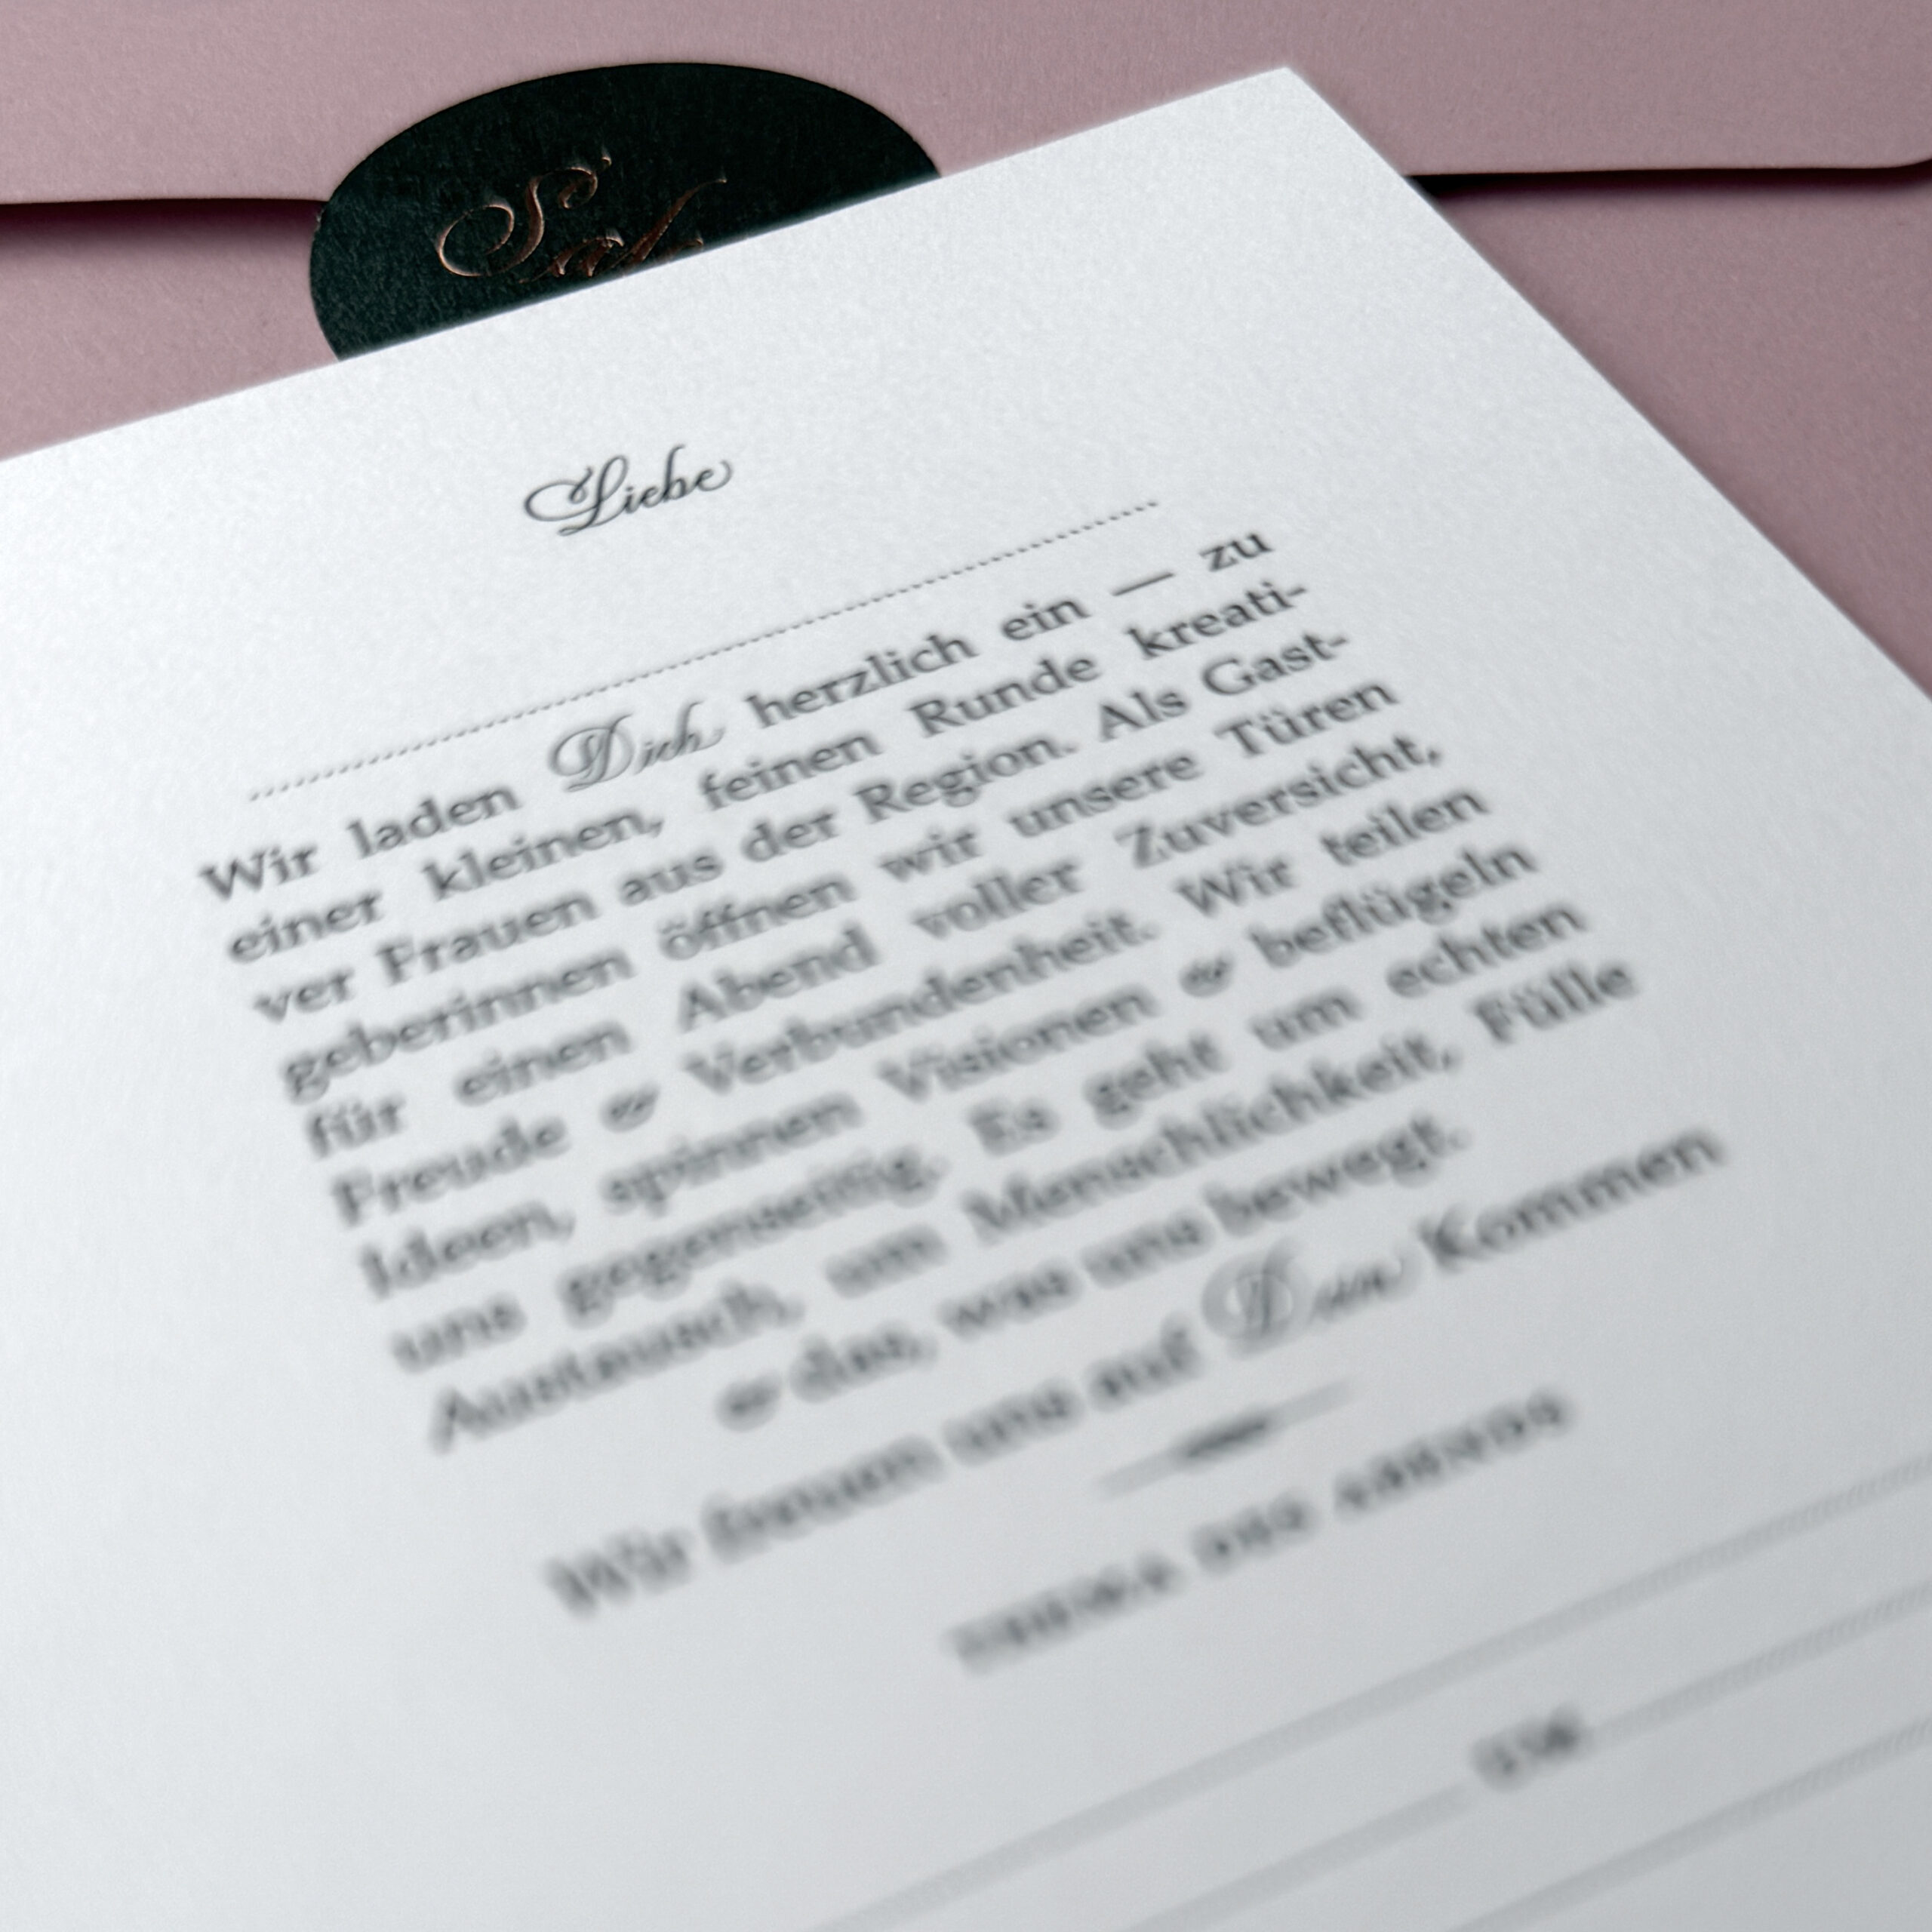 Sal
Liebe
Wir laden Dich herzlich ein — zu
einer kleinen, feinen Runde kreati-
ver Frauen aus der Region. Als Gast-
geberinnen öffnen wir unsere Türen
für einen Abend voller Zuversicht,
Freude & Verbundenheit. Wir teilen
Ideen, spinnen Visionen & beflügeln
uns gegenseitig. Es geht um echten
Austausch, um Menschlichkeit, Fülle
& das, was uns bewegt.
Wir freuen uns auf Dein Kommen
THEMA DES ABENDS